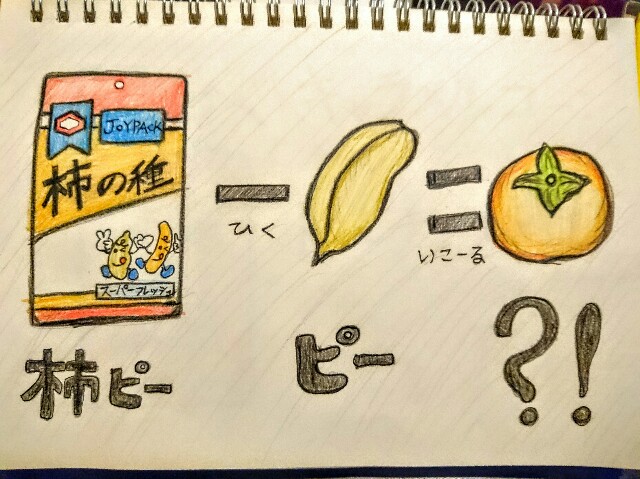 JOYPACK
柿の種
スーパーフレッシュ
ひく
いこーる
柿ピー
ピー
?!